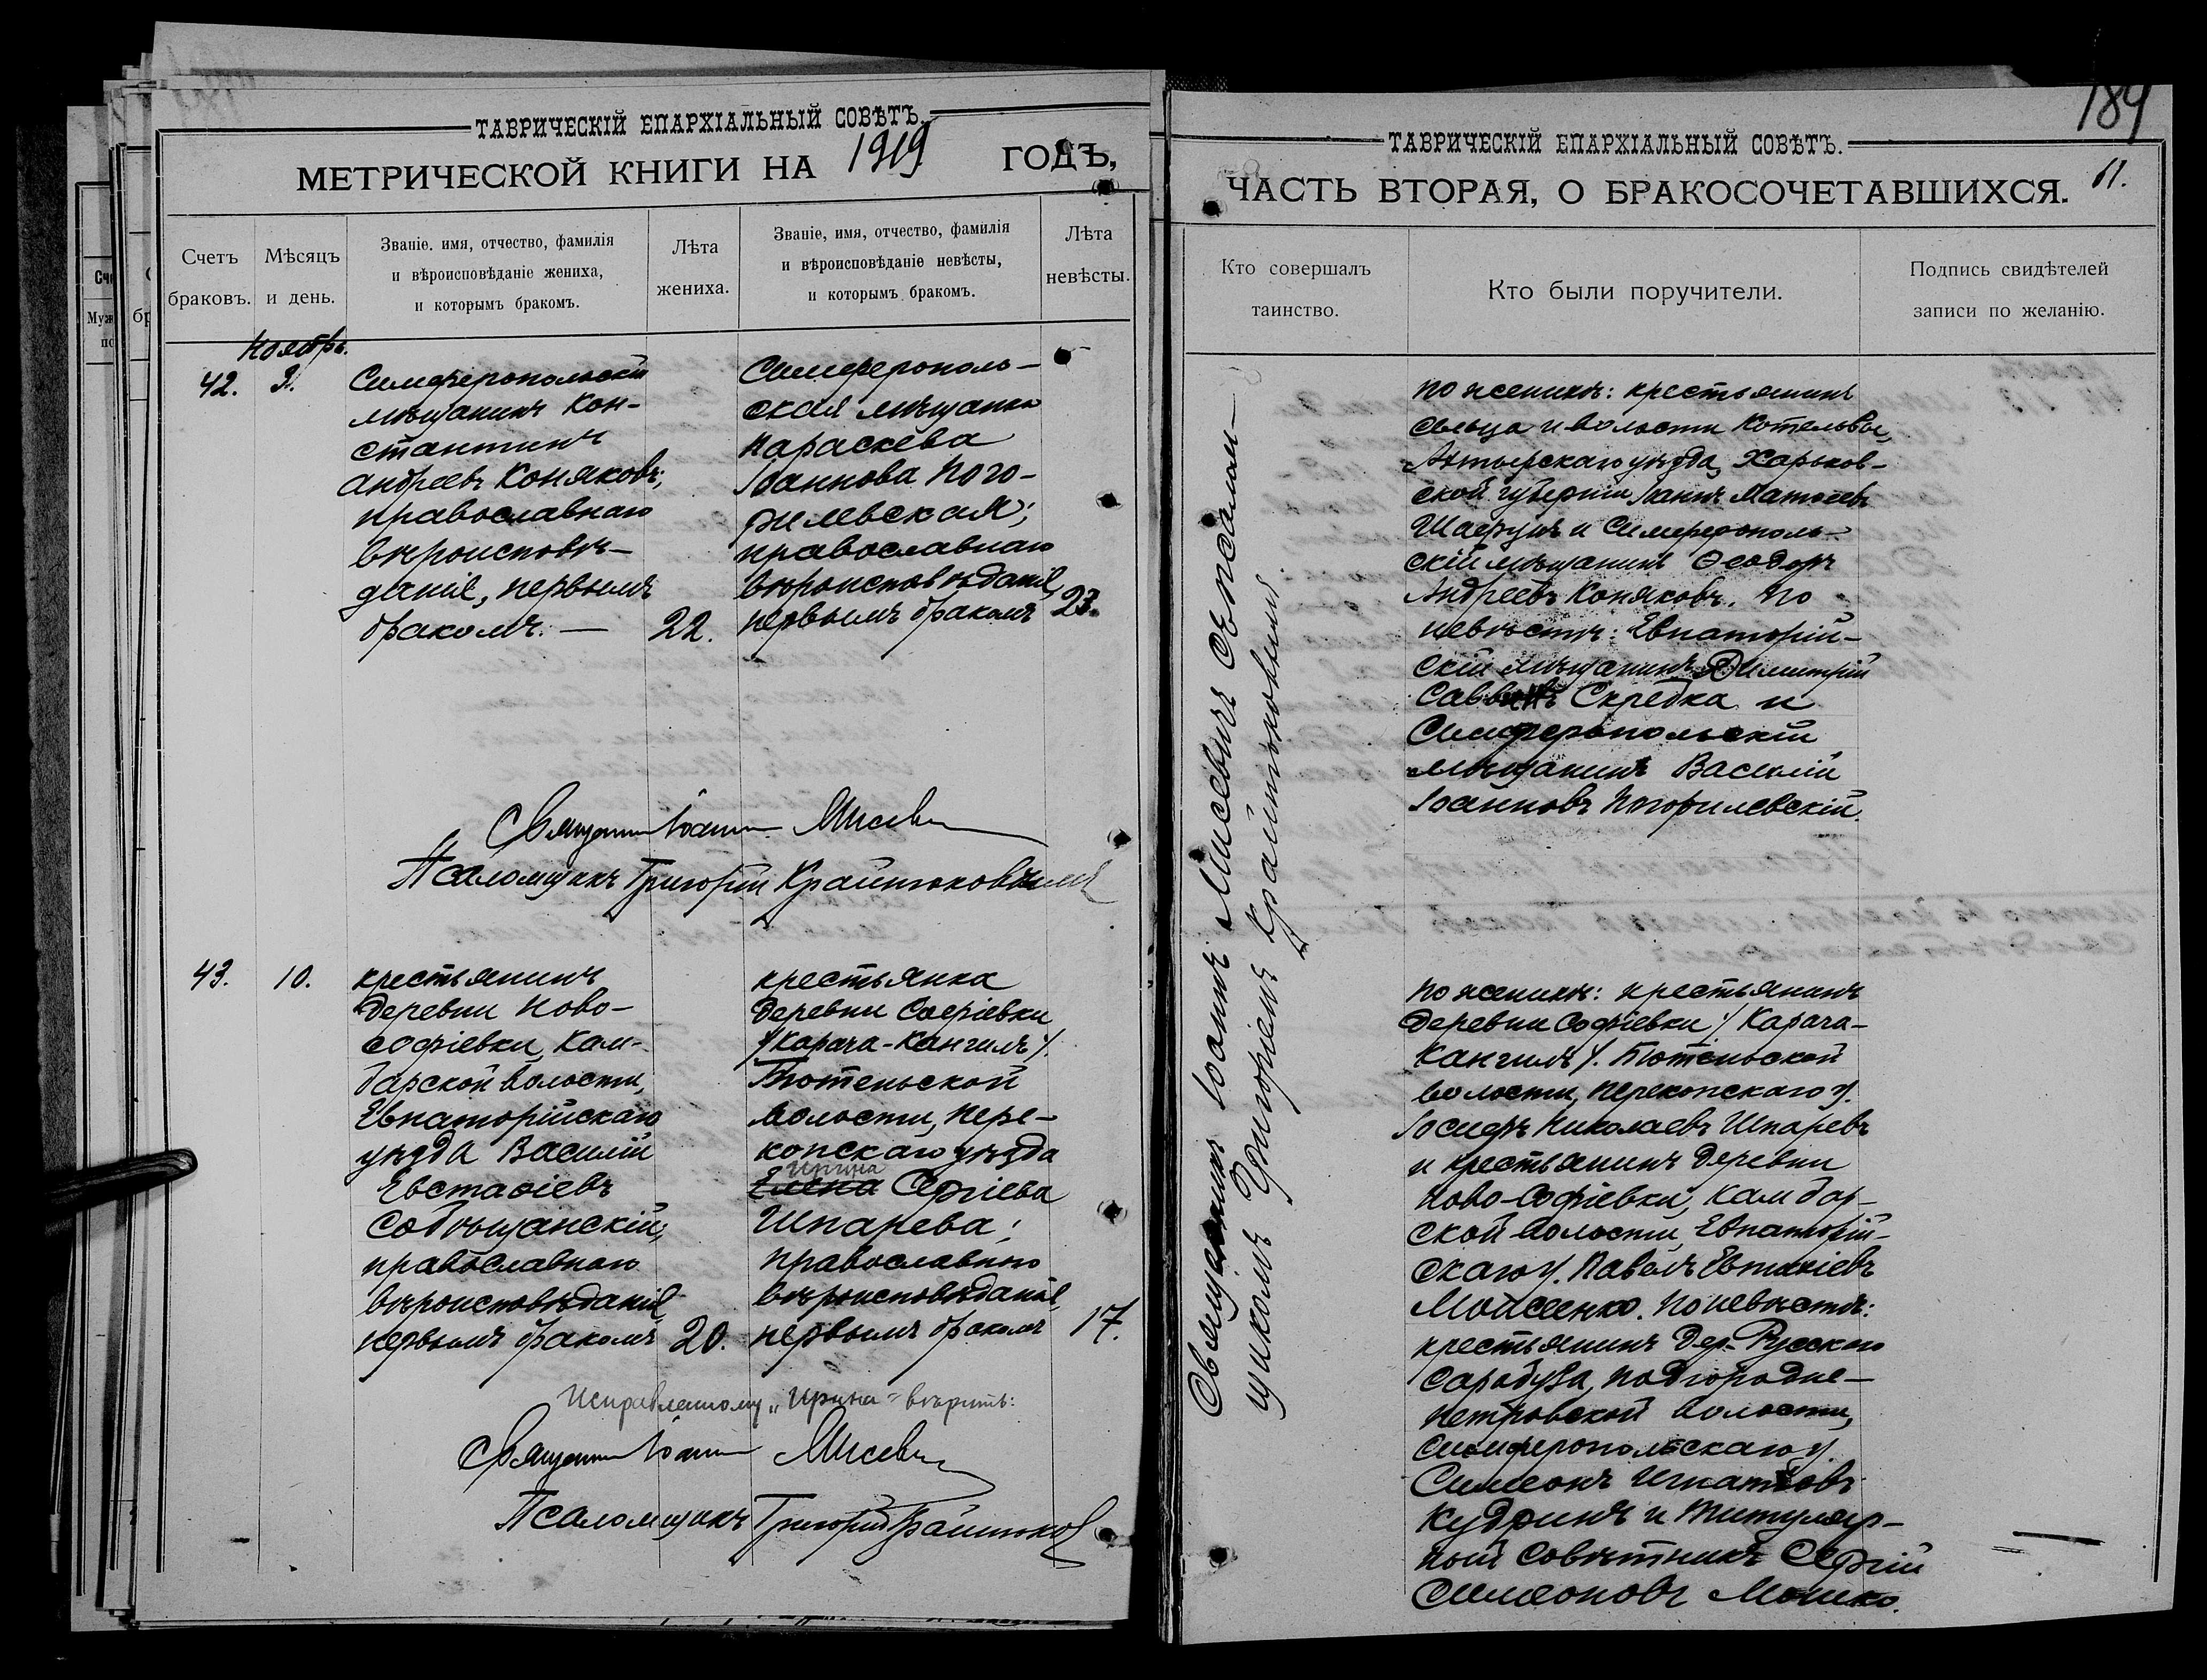 ТАВРИЧЕСКІЙ ЕПАРХІАЛЬНЫЙ СОВѢТЪ.
МЕТРИЧЕСКОЙ КНИГИ НА 1919 ГОДЪ,
Счетъ браковъ.
Мѣсяцъ и день.
Званіе, имя, отчество, фамилія
и вѣроисповѣданіе жениха,
и которымъ бракомъ.
Лѣта
жениха.
Званіе, имя, отчество, фамилія
и вѣроисповѣданіе невѣсты,
и которымъ бракомъ.
Лѣта
невѣсты.
Ноябрь.
42.
9.
Симферопольскій
мѣщанинъ Кон-
стантинъ
Андреевъ Коняковъ;
православнаго
вѣроисповѣ-
данія, первымъ
бракомъ. —
22.
Симферополь-
ская мѣщанка
Параскева
Іоаннова Пого-
рилевская;
православнаго
вѣроисповѣданія,
первымъ бракомъ
23.
Священникъ Іоаннъ Мисевичъ
Псаломщикъ Григорій Крайтюковскій
43.
10.
крестьянинъ
деревни Ново-
софіевки, Кам-
барской волости,
Евпаторійскаго
уѣзда Василій
Евстафіевъ
Собчищанскій;
православнаго
вѣроисповѣданія,
первымъ бракомъ
20.
крестьянка
деревни Софіевки
/Карача-Кангилъ/.
Бютеньской
волости, Пере-
копскаго уѣзда
Ирина
Елена Сергіева
Шпарева;
православнаго
вѣроисповѣданія,
первымъ бракомъ
17.
Исправленному „Ирина" вѣрить:
Священникъ Іоаннъ Мисевичъ
Псаломщикъ Григорій
189
ТАВРИЧЕСКІЙ ЕПАРХІАЛЬНЫЙ СОВѢТЪ.
ЧАСТЬ ВТОРАЯ, О БРАКОСОЧЕТАВШИХСЯ.
61.
Кто совершалъ
таинство.
Кто были поручители.
Подпись свидѣтелей
записи по желанію.
Священникъ Іоаннъ Мисевичъ съ псалом-
щикомъ Григоріемъ Крайтюковскимъ.
По женихѣ: крестьянинъ
сельца и волости Котельвы,
Ахтырскаго уѣзда, Харьков-
ской губерніи Іоаннъ Матѳеевъ
Шаерунъ и Симферополь-
скій мѣщанинъ Ѳеодоръ
Андреевъ Коняковъ. По
невѣстѣ: Евпаторій-
скій мѣщанинъ Димитрій
Саввинъ Скребка и
Симферопольскій
мѣщанинъ Василій
Іоанновъ Погорилевскій.
По женихѣ: крестьянинъ
деревни Софіевки / Карача-
Кангилъ /. Бютеньской
волости, Перекопскаго у.
Іосифъ Николаевъ Шпаревъ
и крестьянинъ деревни
Ново-Софіевки, Камбар-
ской волости, Евпаторій-
скаго у. Павелъ Евтихіевъ
Мойсеенко. По невѣстѣ:
крестьянинъ дер. Русскаго
Сарабуза, Подгородне-
Петровской волости,
Симферопольскаго у.
Симеонъ Игнатіевъ
Кудринъ и титуляр-
ный совѣтникъ Сергій
Симеоновъ Мошко.